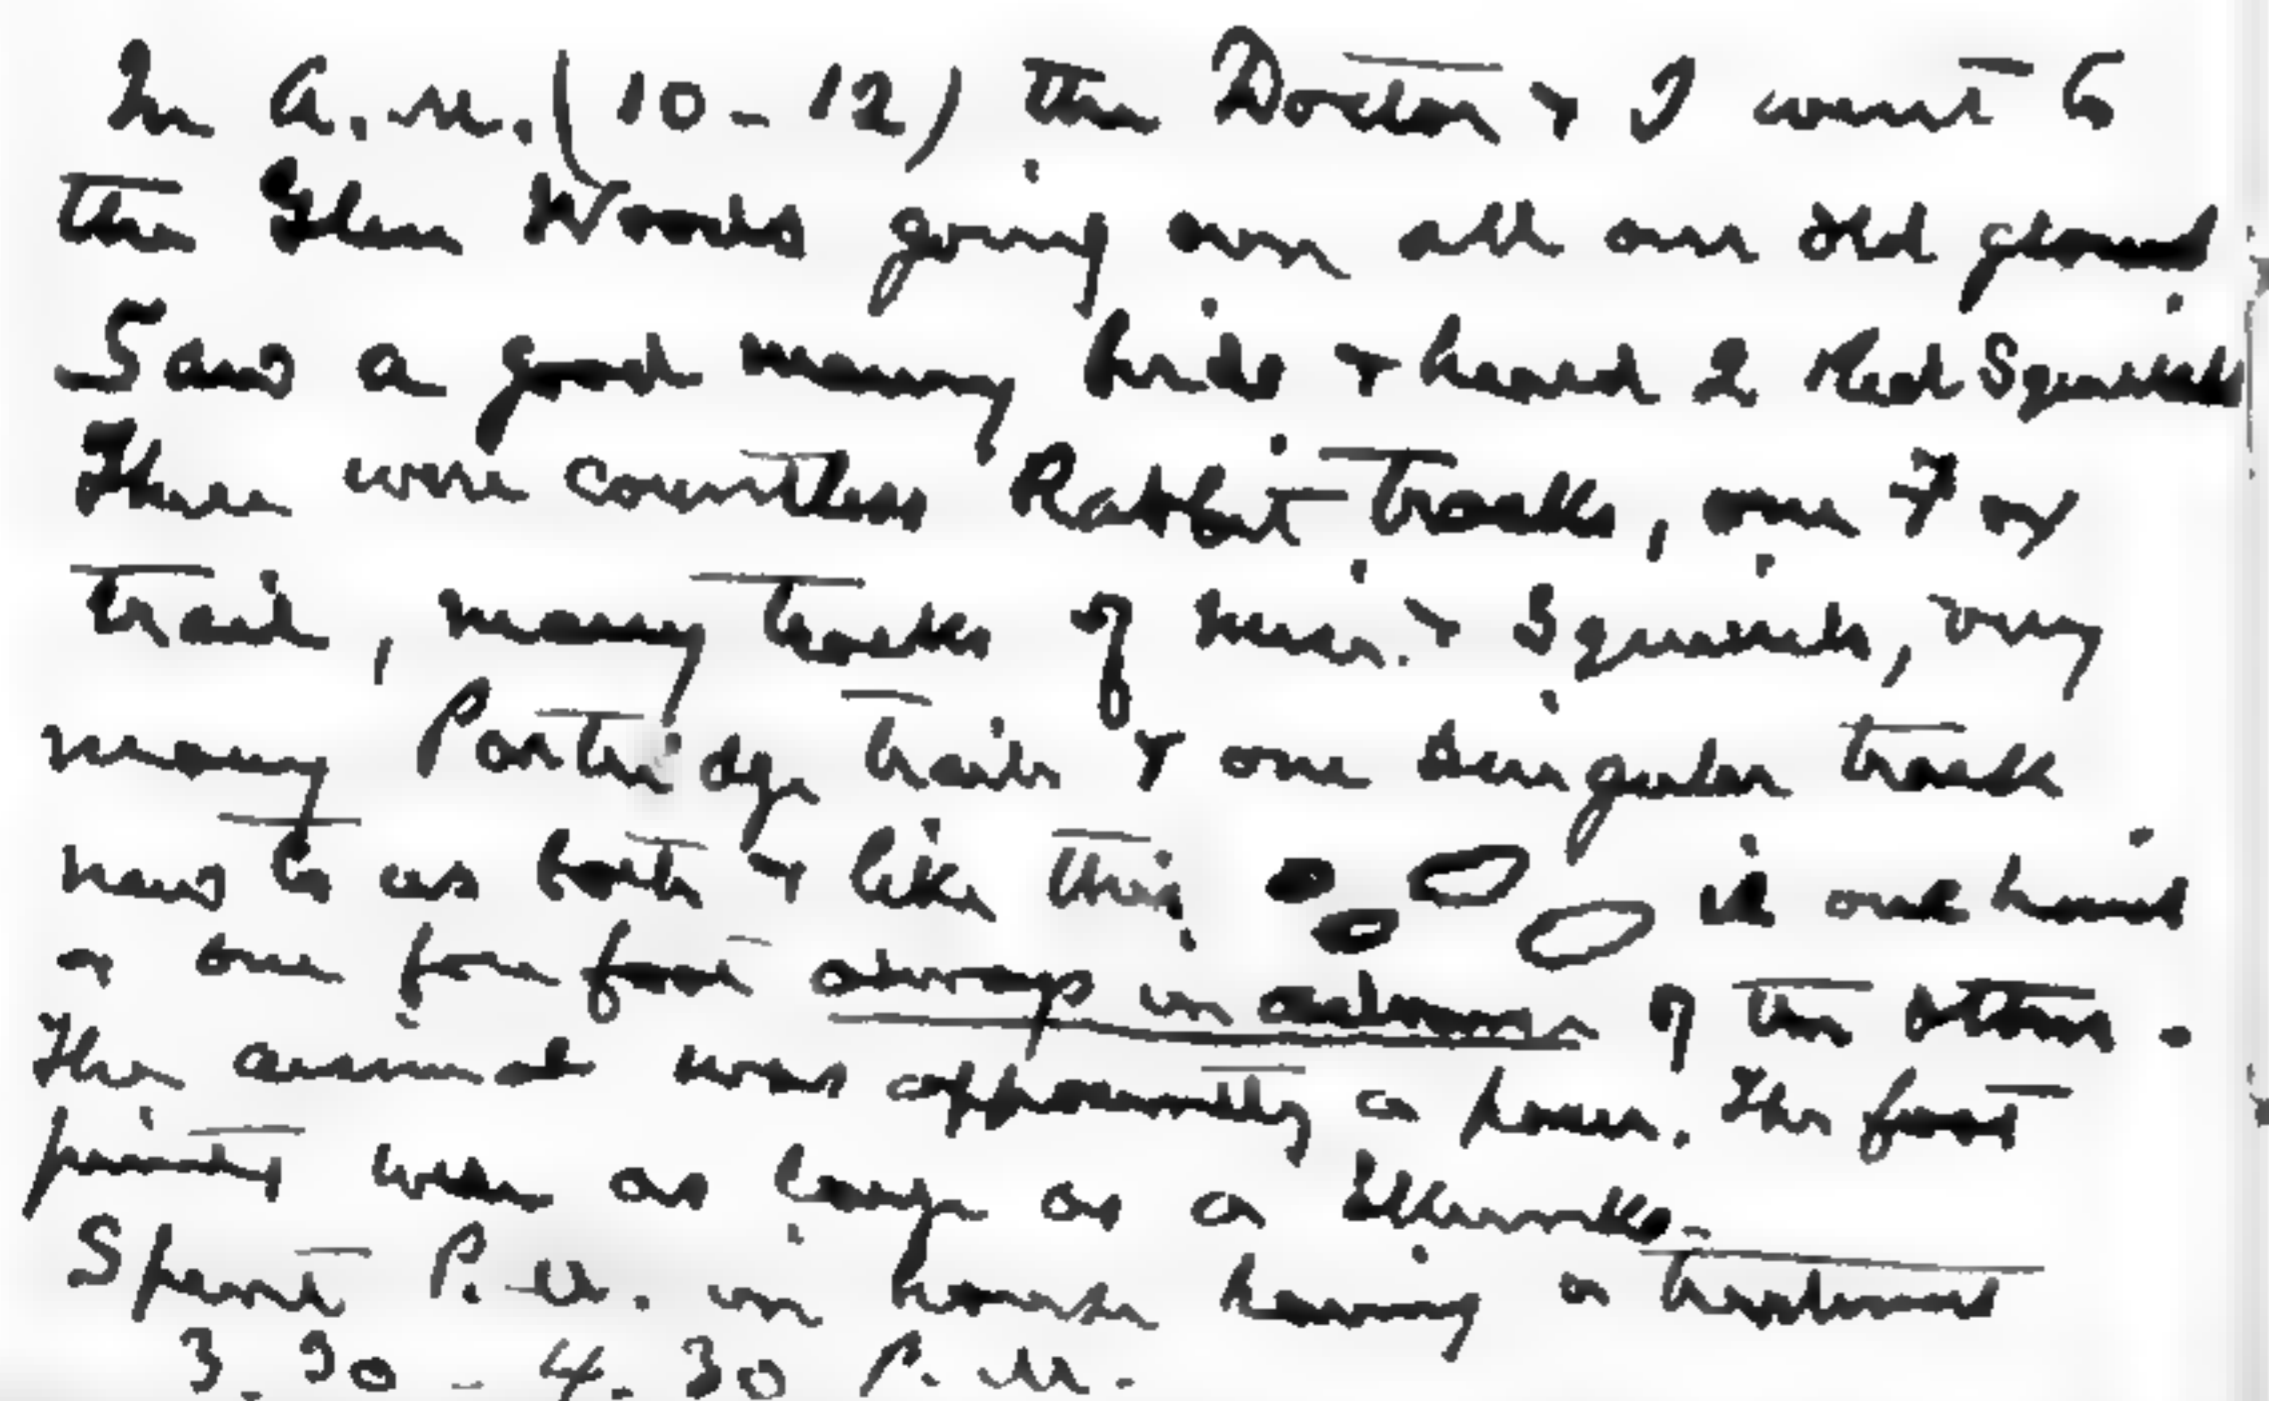 In A.M. (10-12) the Doctor & I went to
the Glen Woods going over all our old ground
Saw a good many birds & heard 2 Red Squirrels
There were countless Rabbit tracks, one Fox
trail, many tracks of mice & Squirrels, very
many Partridge trails & one singular track
new to us both & like this one hind
& one fore foot always in advance of the others.
The animal was apparently a The foot
prints were as large as a
Spent P.M. in house having a treatment
3.30 - 4.30 P.M.